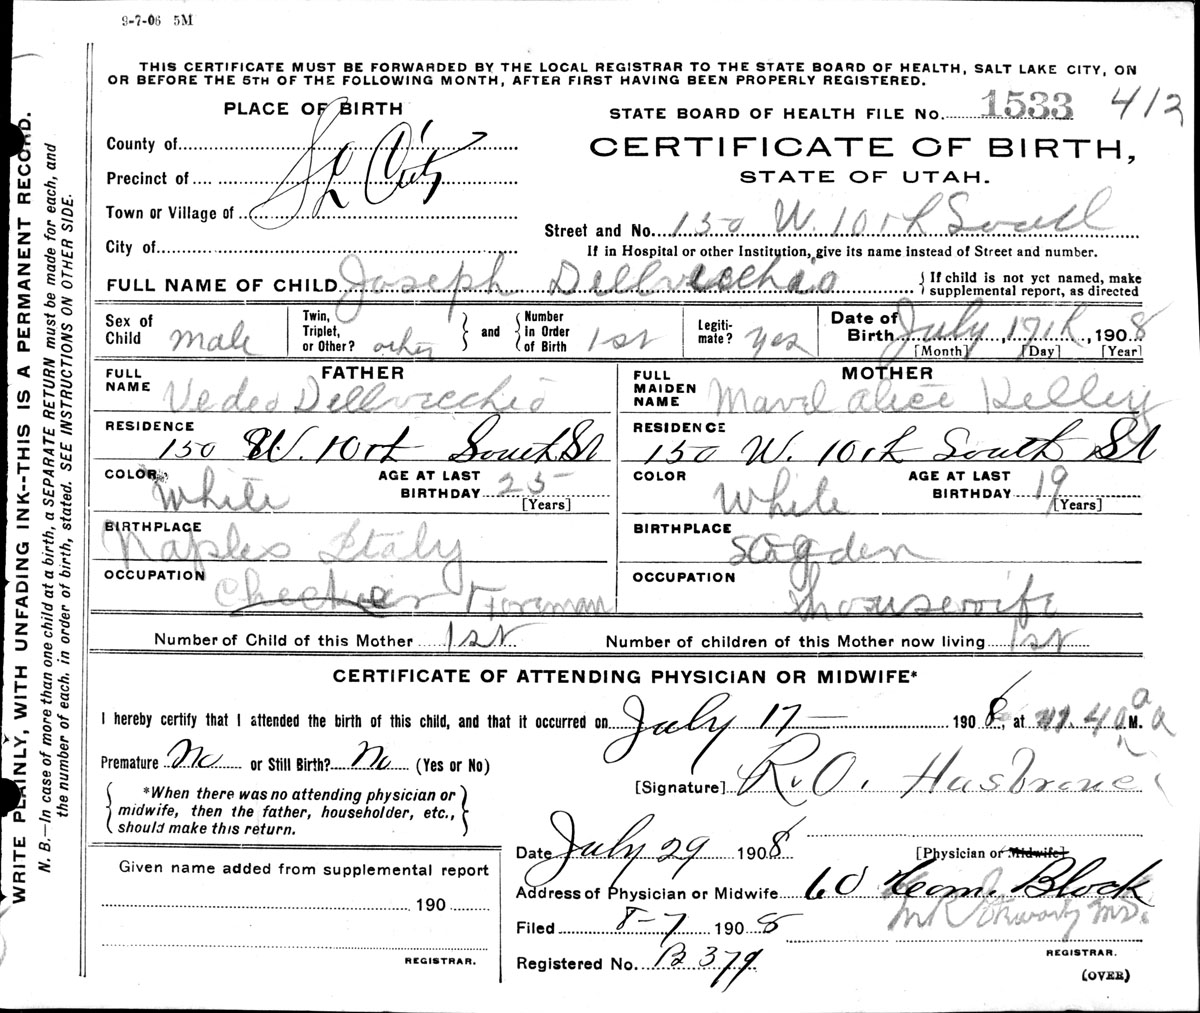 9-7-06 5M
THIS CERTIFICATE MUST BE FORWARDED BY THE LOCAL REGISTRAR TO THE STATE BOARD OF HEALTH, SALT LAKE CITY, ON
OR BEFORE THE 5TH OF THE FOLLOWING MONTH, AFTER FIRST HAVING BEEN PROPERLY REGISTERED.
PLACE OF BIRTH
STATE BOARD OF HEALTH FILE No. 1533 412
County of
CERTIFICATE OF BIRTH,
STATE OF UTAH.
Precinct of
SL City
Town or Village of
City of
Street and No. 150 W. 10th South
If in Hospital or other Institution, give its name instead of Street and number.
FULL NAME OF CHILD Joseph Dellvecchio
{ If child is not yet named, make
supplemental report, as directed
Sex of Child male
Twin, Triplet, or Other?
and
Number in Order of Birth 1st
Legiti-mate? yes
Date of Birth July, 17th, 1908
[Month] [Day] [Year]
FATHER
FULL NAME Vedeo Dellvecchio
RESIDENCE
150 W. 10th South St
COLOR White
AGE AT LAST BIRTHDAY 25
[Years]
BIRTHPLACE
Naples Italy
OCCUPATION
Foreman
MOTHER
FULL MAIDEN NAME Alice Kelley
RESIDENCE
150 W. 10th South St
COLOR White
AGE AT LAST BIRTHDAY 19
[Years]
BIRTHPLACE
Ogden
OCCUPATION
Housewife
Number of Child of this Mother 1st
Number of children of this Mother now living 1st
CERTIFICATE OF ATTENDING PHYSICIAN OR MIDWIFE*
I hereby certify that I attended the birth of this child, and that it occurred on July 17 — 1908, at 40 a M.
Premature No or Still Birth? No (Yes or No)
[Signature] R. O. Hasbrouck
{ *When there was no attending physician or
midwife, then the father, householder, etc.,
should make this return. }
Date July 29 1908
[Physician or Midwife]
Address of Physician or Midwife 60 Com. Block
Filed 8-7 1908
M.D.
Registered No. B 379
REGISTRAR.
(OVER)
Given name added from supplemental report
190
REGISTRAR.
WRITE PLAINLY, WITH UNFADING INK--THIS IS A PERMANENT RECORD.
N. B.—In case of more than one child at a birth, a SEPARATE RETURN must be made for each, and
the number of each, in order of birth, stated. SEE INSTRUCTIONS ON OTHER SIDE.